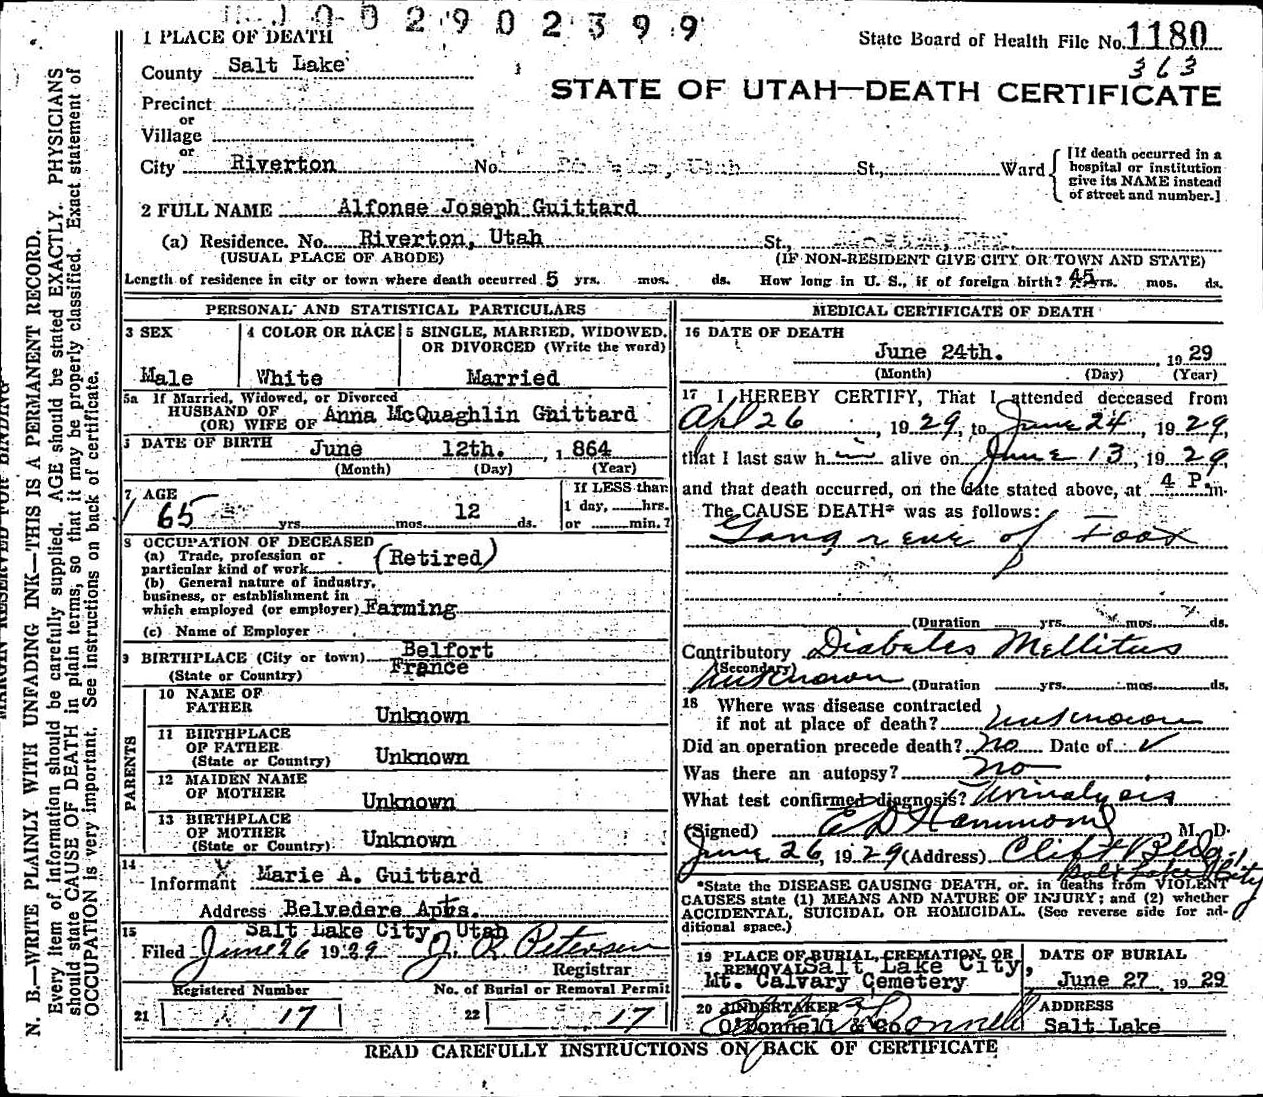 0 0 2 9 0 2 3 9 9
1 PLACE OF DEATH
State Board of Health File No. 1180
363
County Salt Lake
STATE OF UTAH—DEATH CERTIFICATE
Precinct
or
Village
or
City Riverton No. Utah St., Ward
[If death occurred in a hospital or institution give its NAME instead of street and number.]
2 FULL NAME Alfonse Joseph Guittard
(a) Residence. No. Riverton, Utah St.,
(USUAL PLACE OF ABODE) (IF NON-RESIDENT GIVE CITY OR TOWN AND STATE)
Length of residence in city or town where death occurred 5 yrs. mos. ds. How long in U. S., if of foreign birth? 45 yrs. mos. ds.
PERSONAL AND STATISTICAL PARTICULARS
3 SEX
Male
4 COLOR OR RACE
White
5 SINGLE, MARRIED, WIDOWED,
OR DIVORCED (Write the word)
Married
5a If Married, Widowed, or Divorced
HUSBAND OF
(OR) WIFE OF Anna McQuaghlin Guittard
DATE OF BIRTH June 12th. , 1 864
(Month) (Day) (Year)
7 AGE
65 yrs mos. 12 ds.
If LESS than
1 day, hrs.
or min.?
8 OCCUPATION OF DECEASED
(a) Trade, profession or
particular kind of work (Retired)
(b) General nature of industry,
business, or establishment in
which employed (or employer) Farming
(c) Name of Employer
9 BIRTHPLACE (City or town) Belfort
(State or Country) France
PARENTS
10 NAME OF
FATHER Unknown
11 BIRTHPLACE
OF FATHER
(State or Country) Unknown
12 MAIDEN NAME
OF MOTHER Unknown
13 BIRTHPLACE
OF MOTHER
(State or Country) Unknown
14 X
Informant Marie A. Guittard
Address Belvedere Apts.
Salt Lake City, Utah
15
Filed June 26 1929 J. R. Petersen
Registrar
Registered Number No. of Burial or Removal Permit
21 17 22 17
MEDICAL CERTIFICATE OF DEATH
16 DATE OF DEATH
June 24th. , 19 29
(Month) (Day) (Year)
17 I HEREBY CERTIFY, That I attended deceased from
Apl 26 , 1929, to June 24, 1929,
that I last saw h im alive on June 13, 1929
and that death occurred, on the date stated above, at 4 P. m.
The CAUSE DEATH* was as follows:
Gangrene of Foot
(Duration yrs. mos. ds.
Contributory Diabetes Mellitus
(Secondary)
Unknown (Duration yrs. mos. ds.
18 Where was disease contracted
if not at place of death? unknown
Did an operation precede death? no Date of ✓
Was there an autopsy? no
What test confirmed diagnosis? Urinalysis
(Signed) E D Hammond M. D.
June 26, 1929 (Address) Clift Bldg.
Salt Lake City
*State the DISEASE CAUSING DEATH, or, in deaths from VIOLENT
CAUSES state (1) MEANS AND NATURE OF INJURY; and (2) whether
ACCIDENTAL, SUICIDAL OR HOMICIDAL. (See reverse side for ad-
ditional space.)
19 PLACE OF BURIAL, CREMATION, OR
REMOVAL Salt Lake City,
Mt. Calvary Cemetery
DATE OF BURIAL
June 27 19 29
20 UNDERTAKER
O'Donnell & Co.
ADDRESS
Salt Lake
READ CAREFULLY INSTRUCTIONS ON BACK OF CERTIFICATE
MARGIN RESERVED FOR BINDING
N. B.—WRITE PLAINLY WITH UNFADING INK—THIS IS A PERMANENT RECORD.
Every item of information should be carefully supplied. AGE should be stated EXACTLY. PHYSICIANS
should state CAUSE OF DEATH in plain terms, so that it may be properly classified. Exact statement of
OCCUPATION is very important. See instructions on back of certificate.